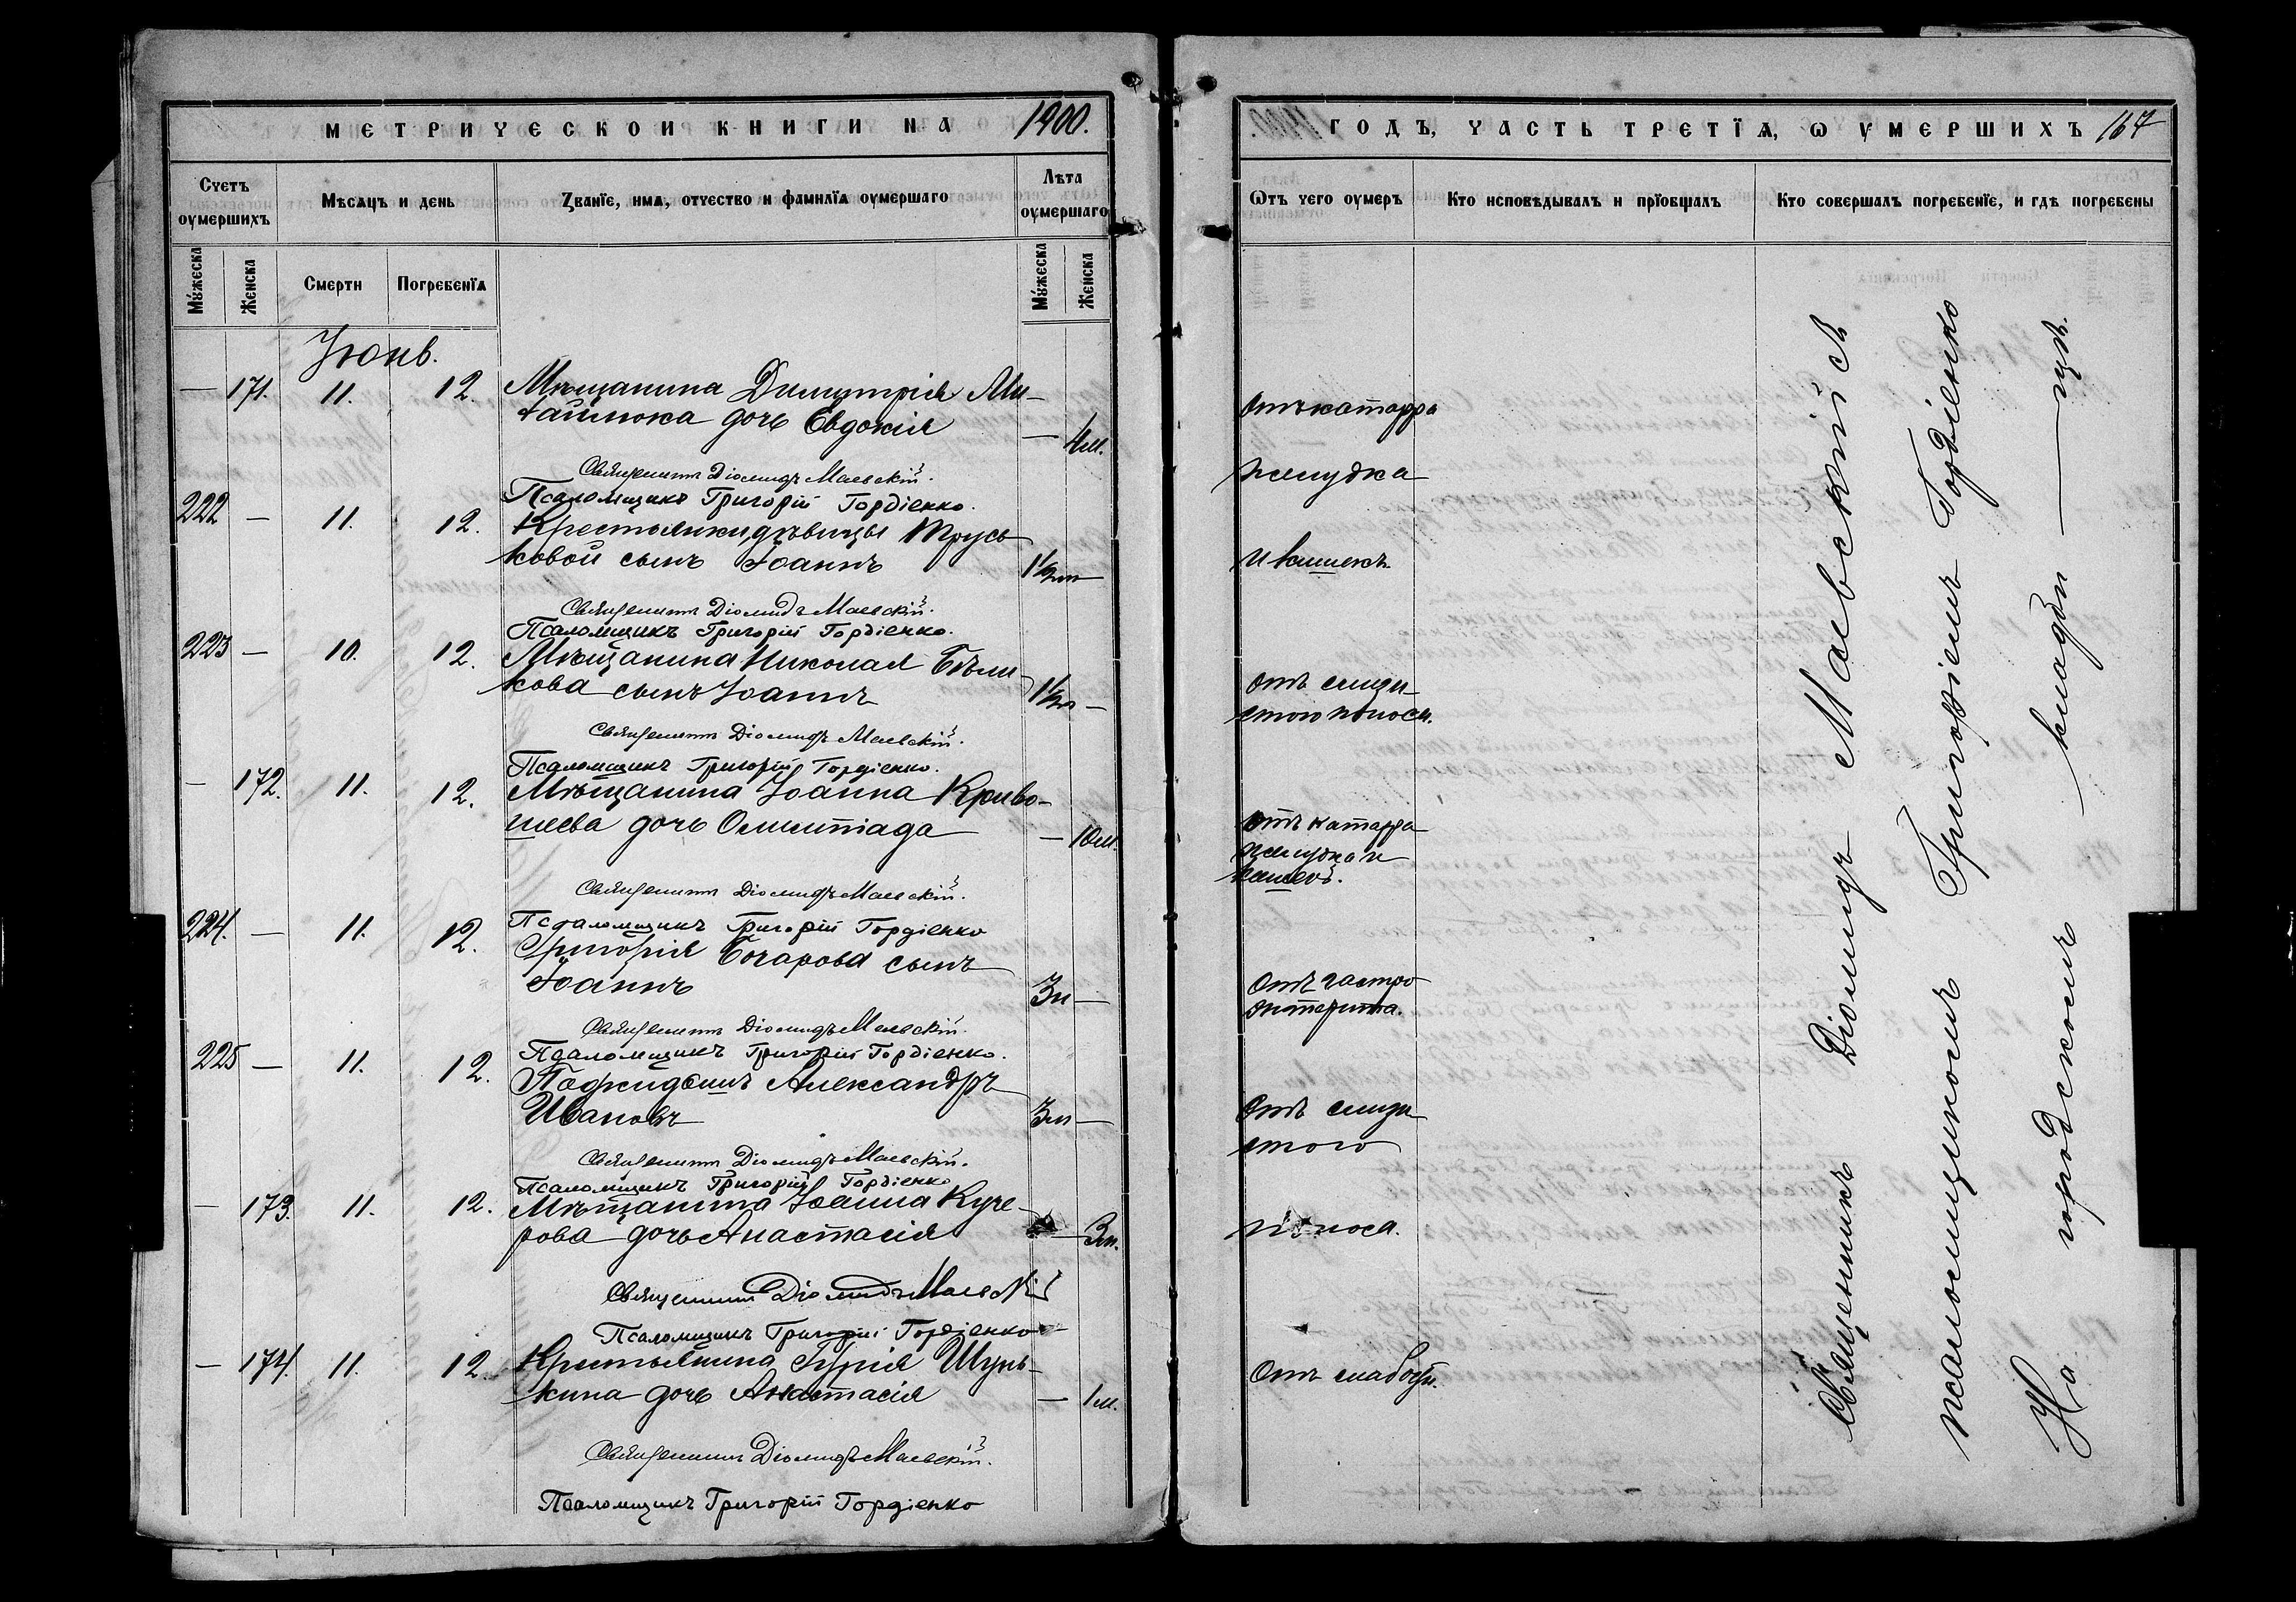 МЕТРИЧЕСКОЙ КНИГИ НА 1900.
Счетъ оумершихъ
Мѣсяцъ и день
Званїе, имя, отчество и фамилїя оумершаго
Лѣта оумершаго
Мꙋжеска
Женска
Смерти
Погребенїя
Мꙋжеска
Женска
Июнь.
— 171. 11. 12. Мѣщанина Димитрія Ми-
хайлюка дочь Евдокія — 4м.
Священникъ Діомидъ Маевскій.
Псаломщикъ Григорій Гордіенко.
222 — 11. 12. Крестьянки, дѣвицы Трусь
ковой сынъ Іоаннъ —
Священникъ Діомидъ Маевскій.
Псаломщикъ Григорій Гордіенко.
223 — 10. 12. Мѣщанина Николая Бѣли
кова сынъ Іоаннъ —
Священникъ Діомидъ Маевскій.
Псаломщикъ Григорій Гордіенко.
— 172. 11. 12. Мѣщанина Іоанна Криво-
шеева дочь Олимпіада — 10м.
Священникъ Діомидъ Маевскій.
Псаломщикъ Григорій Гордіенко
224. — 11. 12. Григорія Бочарова сынъ
Іоаннъ 3м —
Священникъ Діомидъ Маевскій.
Псаломщикъ Григорій Гордіенко.
225 — 11. 12. Подкидышъ Александръ
Ивановъ 3м —
Священникъ Діомидъ Маевскій.
Псаломщикъ Григорій Гордіенко
— 173. 11. 12. Мѣщанина Іоанна Куче-
рова дочь Анастасія — 3м.
Священникъ Діомидъ Маевскій
Псаломщикъ Григорій Гордіенко
— 174. 11. 12. Крестьянина Гурія Шунь-
кина дочь Анастасія — 1м.
Священникъ Діомидъ Маевскій.
Псаломщикъ Григорій Гордіенко
ГОДЪ, ЧАСТЬ ТРЕТЇЯ, Ѡ УМЕРШИХЪ 167
Ѿтъ чего оумеръ
Кто исповѣдывалъ и прїобщалъ
Кто совершалъ погребенїе, и гдѣ погребены
Отъ катарра
желудка
и кишекъ.
Отъ слизи-
стого поноса.
Отъ катарра
желудка и
кишекъ.
Отъ гастро
энтерита.
Отъ слизи
стого
поноса.
Отъ слабости.
Священникъ Діомидъ Маевскій съ
псаломщикомъ Григоріемъ Гордіенко
На городскомъ — кладби — щѣ.